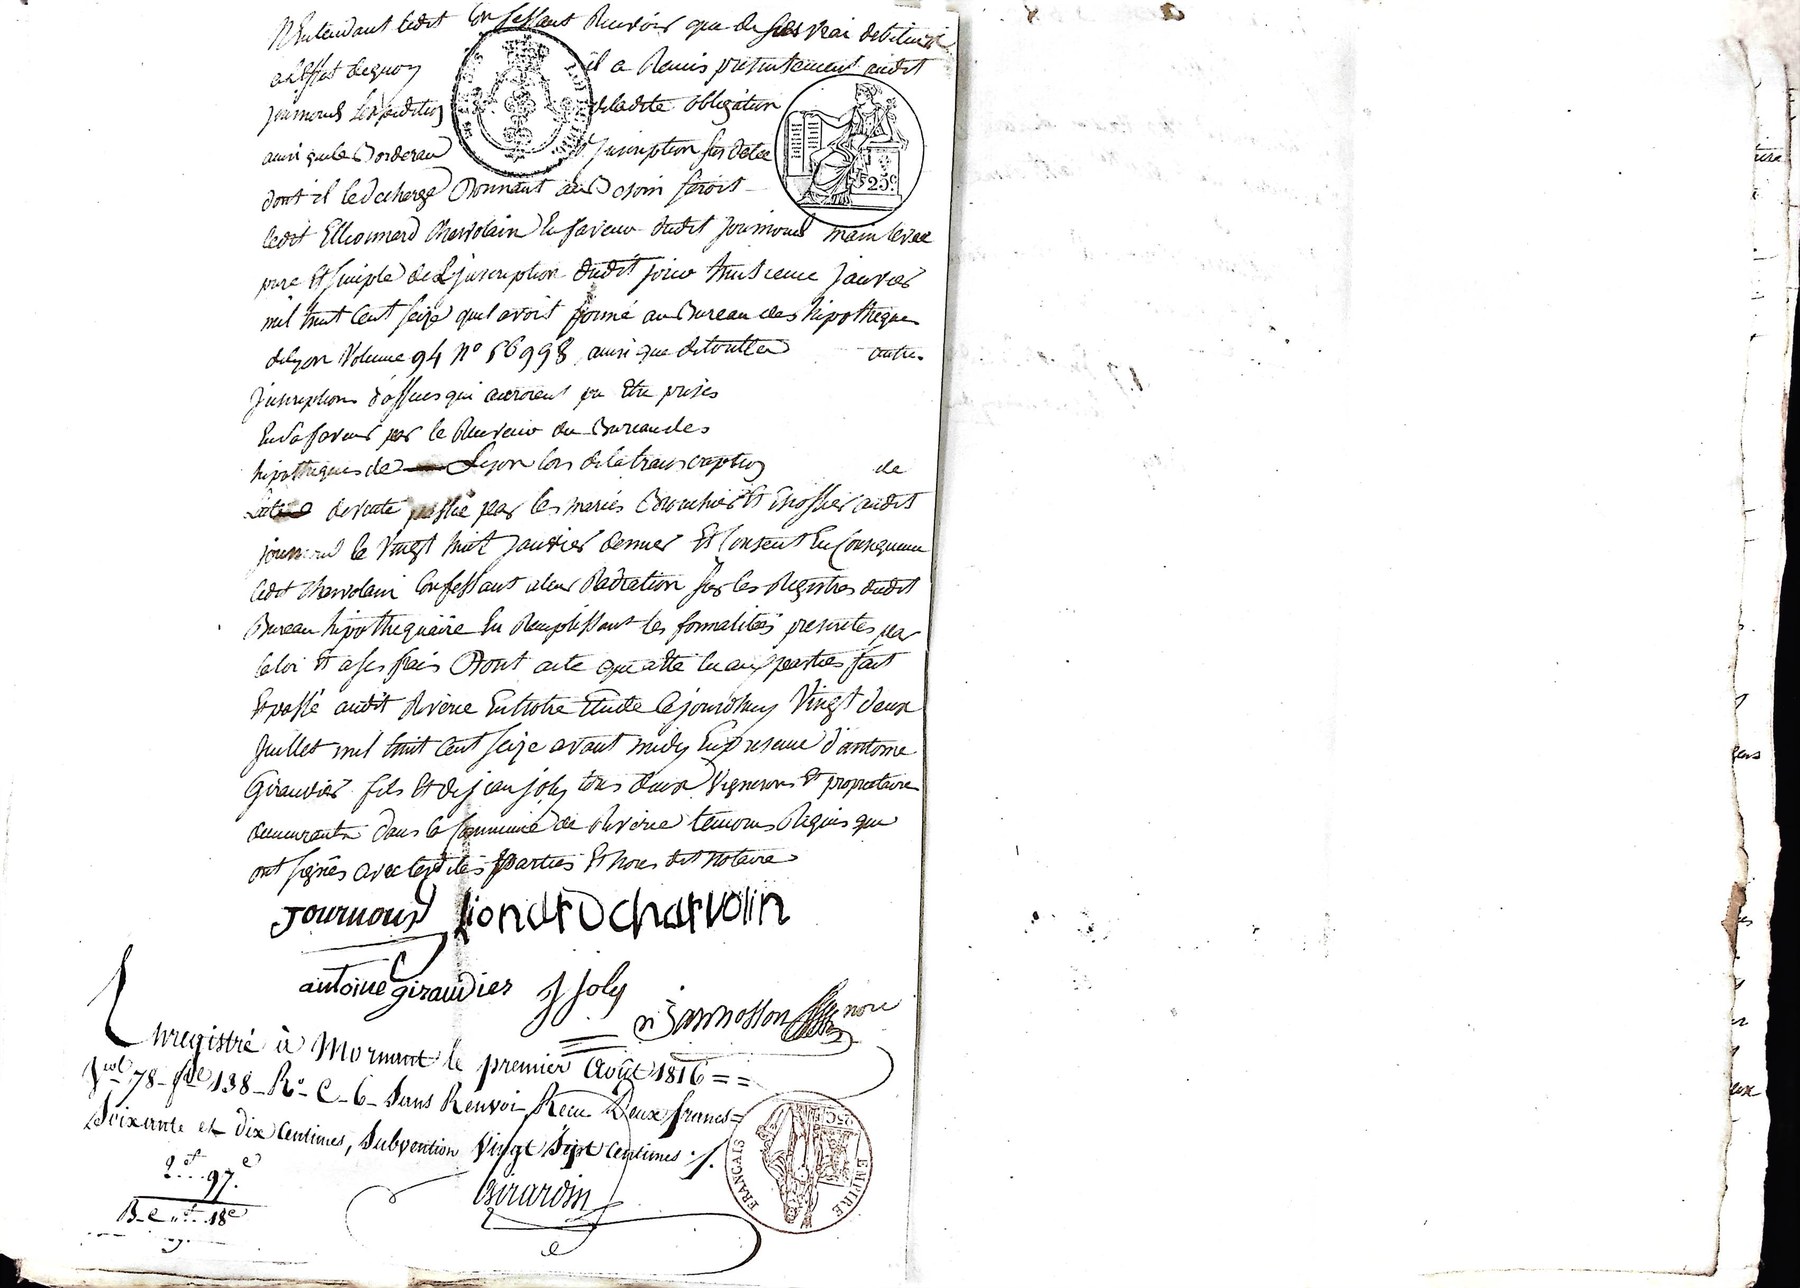 N'entendant ledit Confessant Recevoir que de ses vrai debiteur
a l'effet dequoy il a Remis presentement audit
Journoud l'expedition deladite obligation
ainsi que le Bordereau d'Inscription sus datée
dont il le decharge Donnant au Besoin seroit
ledit Elleonnard Charvolain En faveur dudit Journoud main levée
pure Et simple de L'Inscription dudit jour huitieme janvier
mil huit Cent seize qu'il avoit formé au Bureau des hipotheques
de Lyon Volume 94 No 56998 ainsi que detoutte autre
Inscriptions d'offices qui auroient pu Etre prises
En sa faveur par le Receveur du Bureau des
hipotheques de Lyon lors de la transcription de
L'acte de vente passée par les mariés audit
Journoud le Vingt huit Janvier dernier Et Consent En Consequence
ledit Charvolain Confessant a leur Radiation sur les Registres dudit
Bureau hipothequaire En Remplissant les formalités prescrites par
la loi Et a ses frais Dont acte que a été lu aux parties fait
Et passé audit Riverie En notre Etude Cejourdhuy Vingt deux
Juillet mil huit Cent seize avant midy En presence d'antoine
Giraudier fils Et de jean joly tous deux Vignerons Et proprietaire
demeurants dans la Commune de Riverie temoins Requis que
ont signés avec lesdites Parties Et Nous dit Notaire
Journoud liondrDcharvolin
antoine giraudier J Joly
nore
Enregistré à Mornant le premier Août 1816 = =
Vol 78 - fol 138 - Ro - C - 6 - Sans Renvoi, Recu Deux francs =
Soixante et dix Centimes, Subvention Vingt Sept Centimes ./.
2 f .. 97 c
18 c
Girardin
25 c
25 C
EMPIRE FRANÇAIS